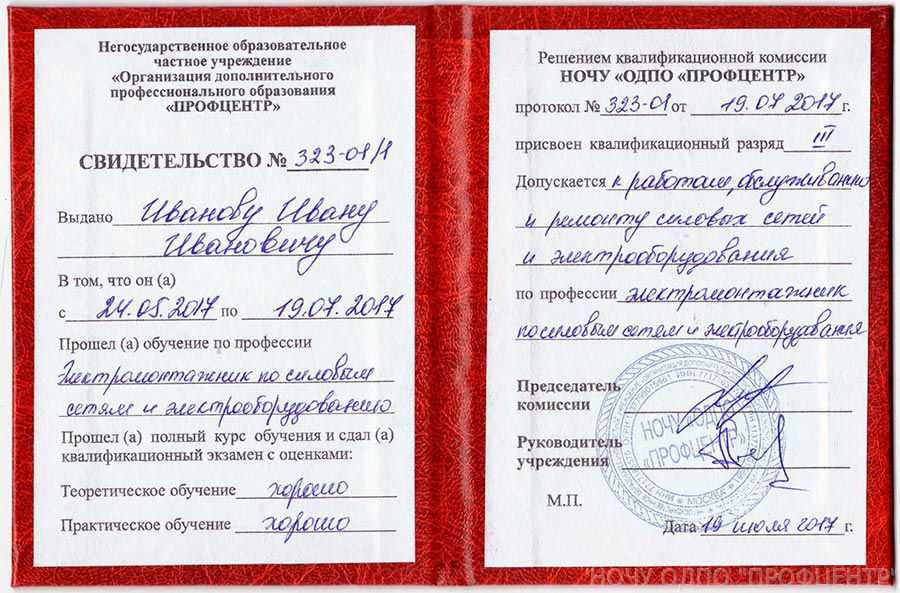 Негосударственное образовательное
частное учреждение
«Организация дополнительного
профессионального образования
«ПРОФЦЕНТР»
СВИДЕТЕЛЬСТВО № 323-01/1
Выдано Иванову Ивану
Ивановичу
В том, что он (а)
с 24.05.2017 по 19.07.2017
Прошел (а) обучение по профессии
Электромонтажник по силовым
сетям и электрооборудованию
Прошел (а) полный курс обучения и сдал (а)
квалификационный экзамен с оценками:
Теоретическое обучение хорошо
Практическое обучение хорошо
Решением квалификационной комиссии
НОЧУ «ОДПО «ПРОФЦЕНТР»
протокол № 323-01 от 19.07 2017 г.
присвоен квалификационный разряд III
Допускается к работам, обслуживанию
и ремонту силовых сетей
и электрооборудования
по профессии электромонтажник
по силовым сетям и электрооборудования
Председатель
комиссии
Руководитель
учреждения
НОЧУ «ОДПО
«ПРОФЦЕНТР»
МОСКВА
М.П.
Дата 19 июля 2017 г.
"НОЧУ ОДПО "ПРОФЦЕНТР"